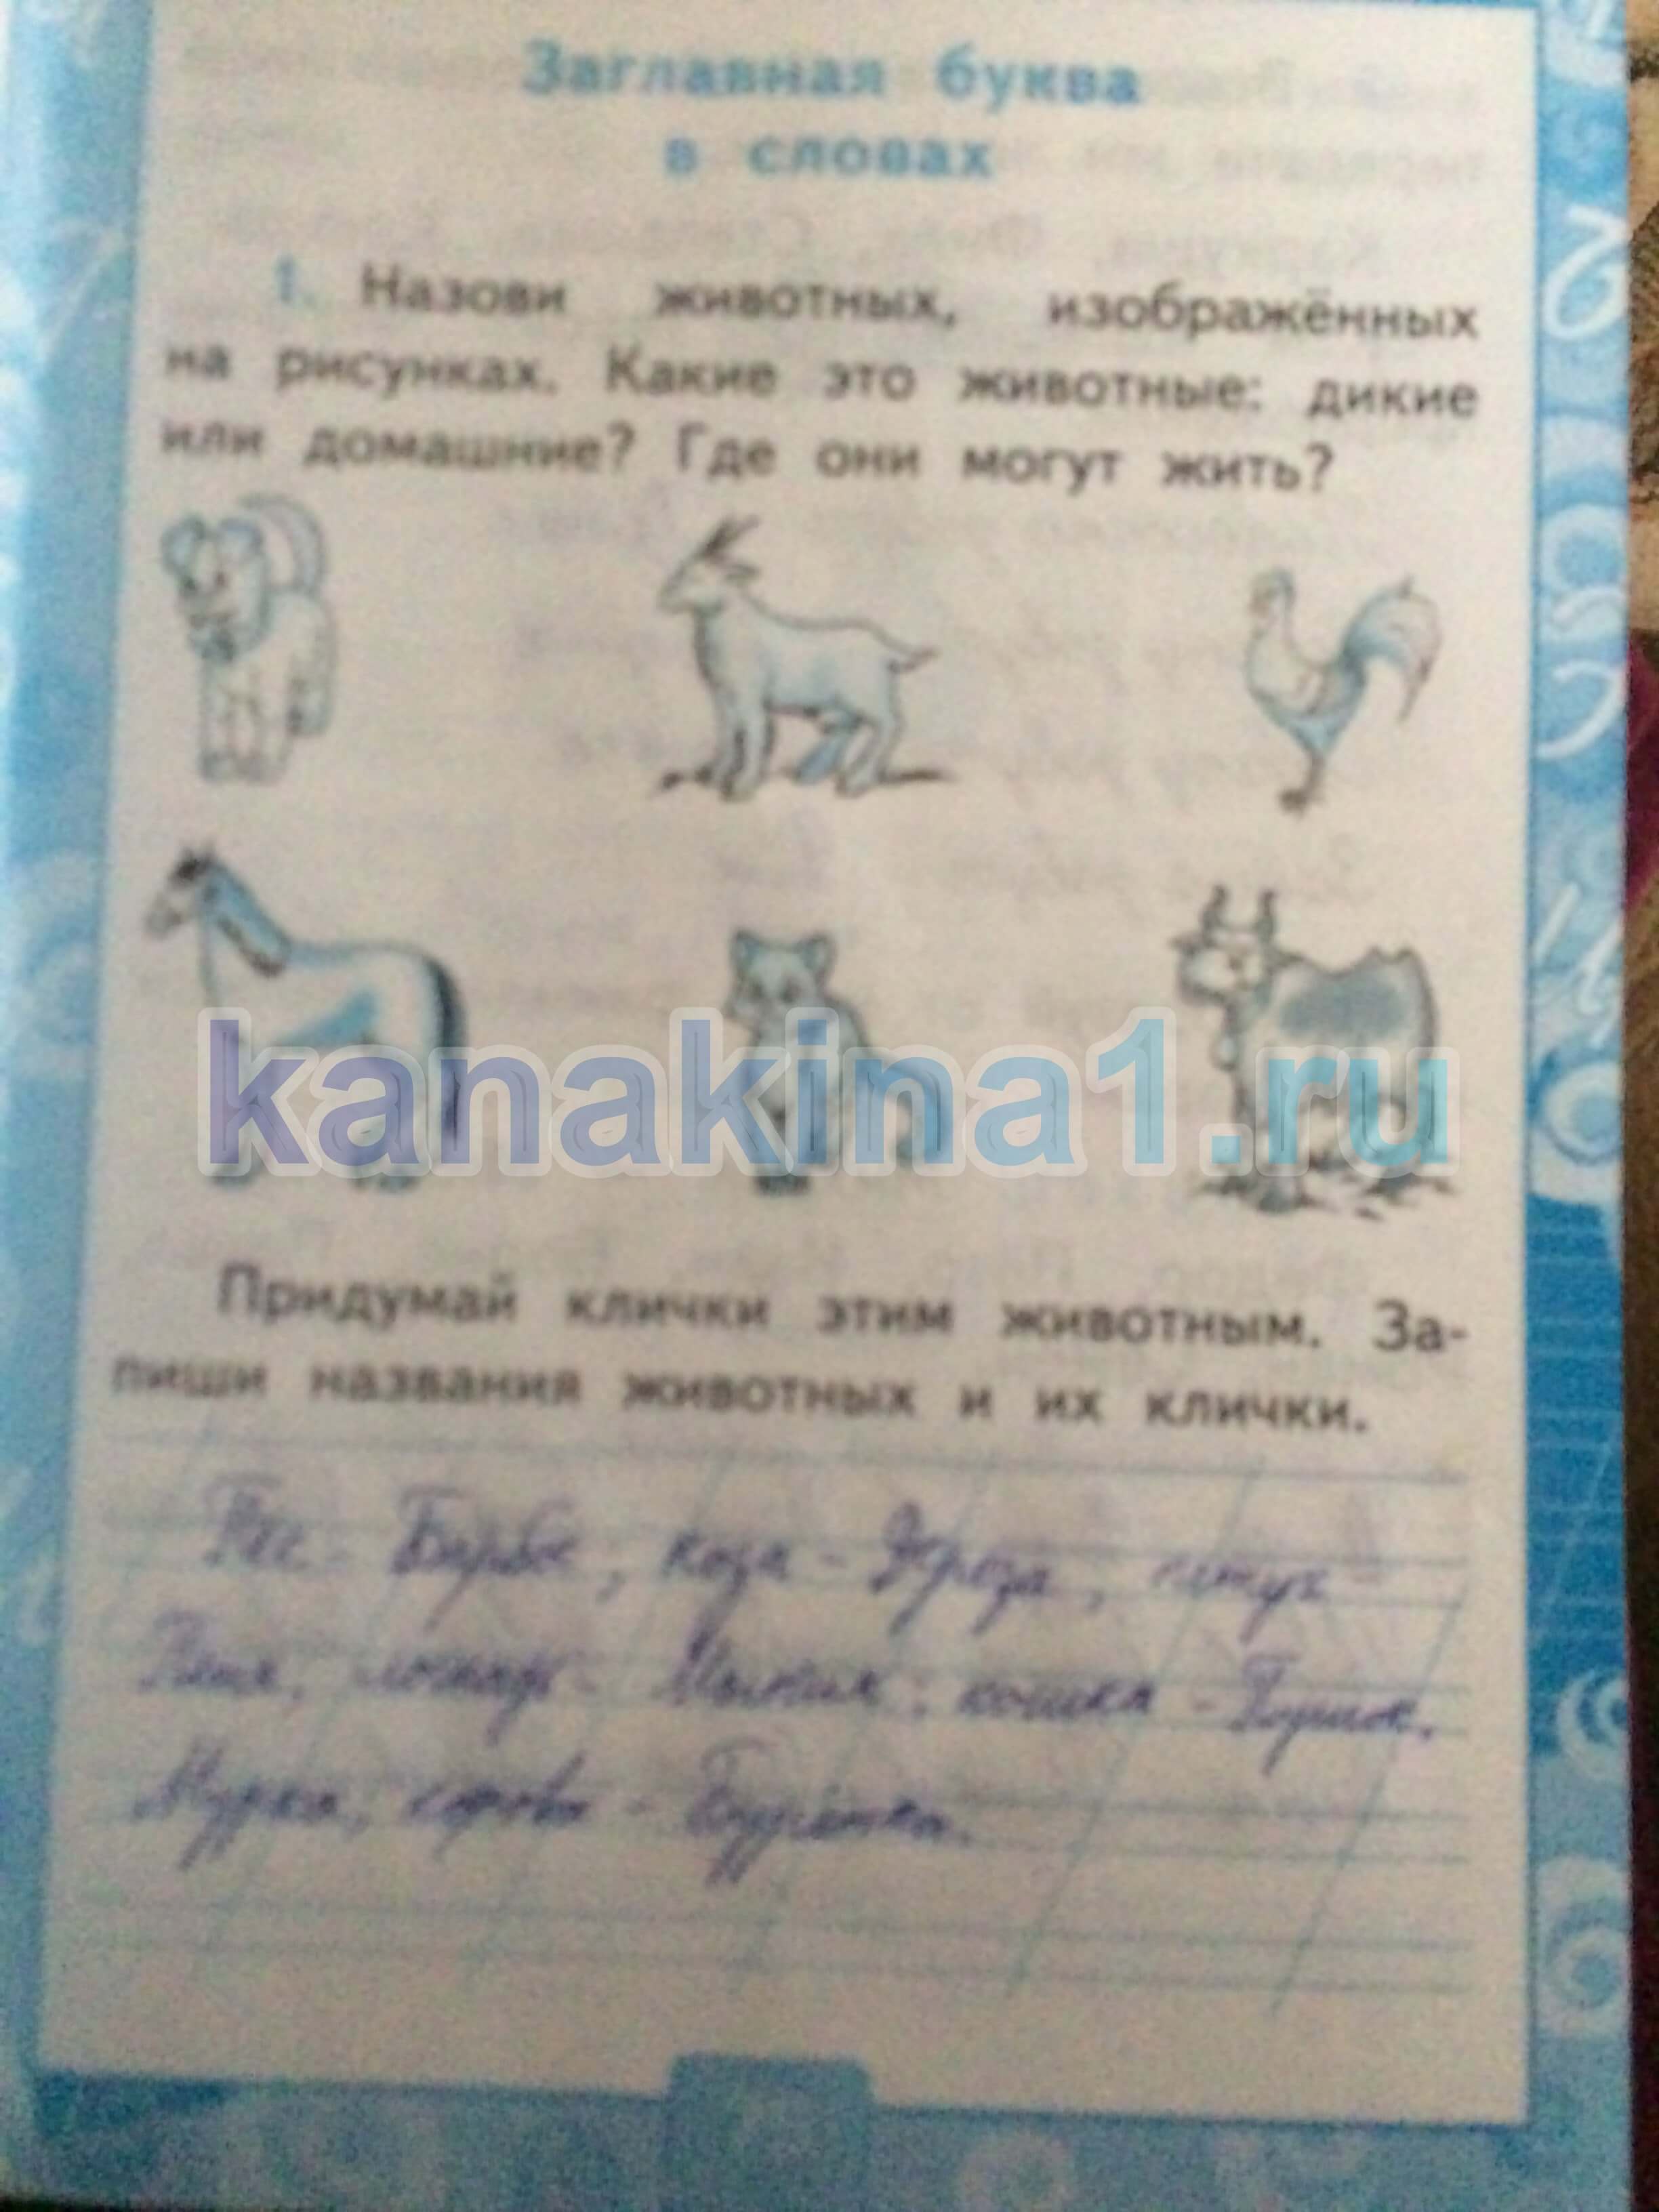 Заглавная буква
в словах
1. Назови животных, изображённых
на рисунках. Какие это животные: дикие
или домашние? Где они могут жить?
kanakina1.ru
Придумай клички этим животным. За-
пиши названия животных и их клички.
Пес - , коза - Дереза, петух -
Петя, лошадь - , кошка -
Мурка, корова - Бурёнка.